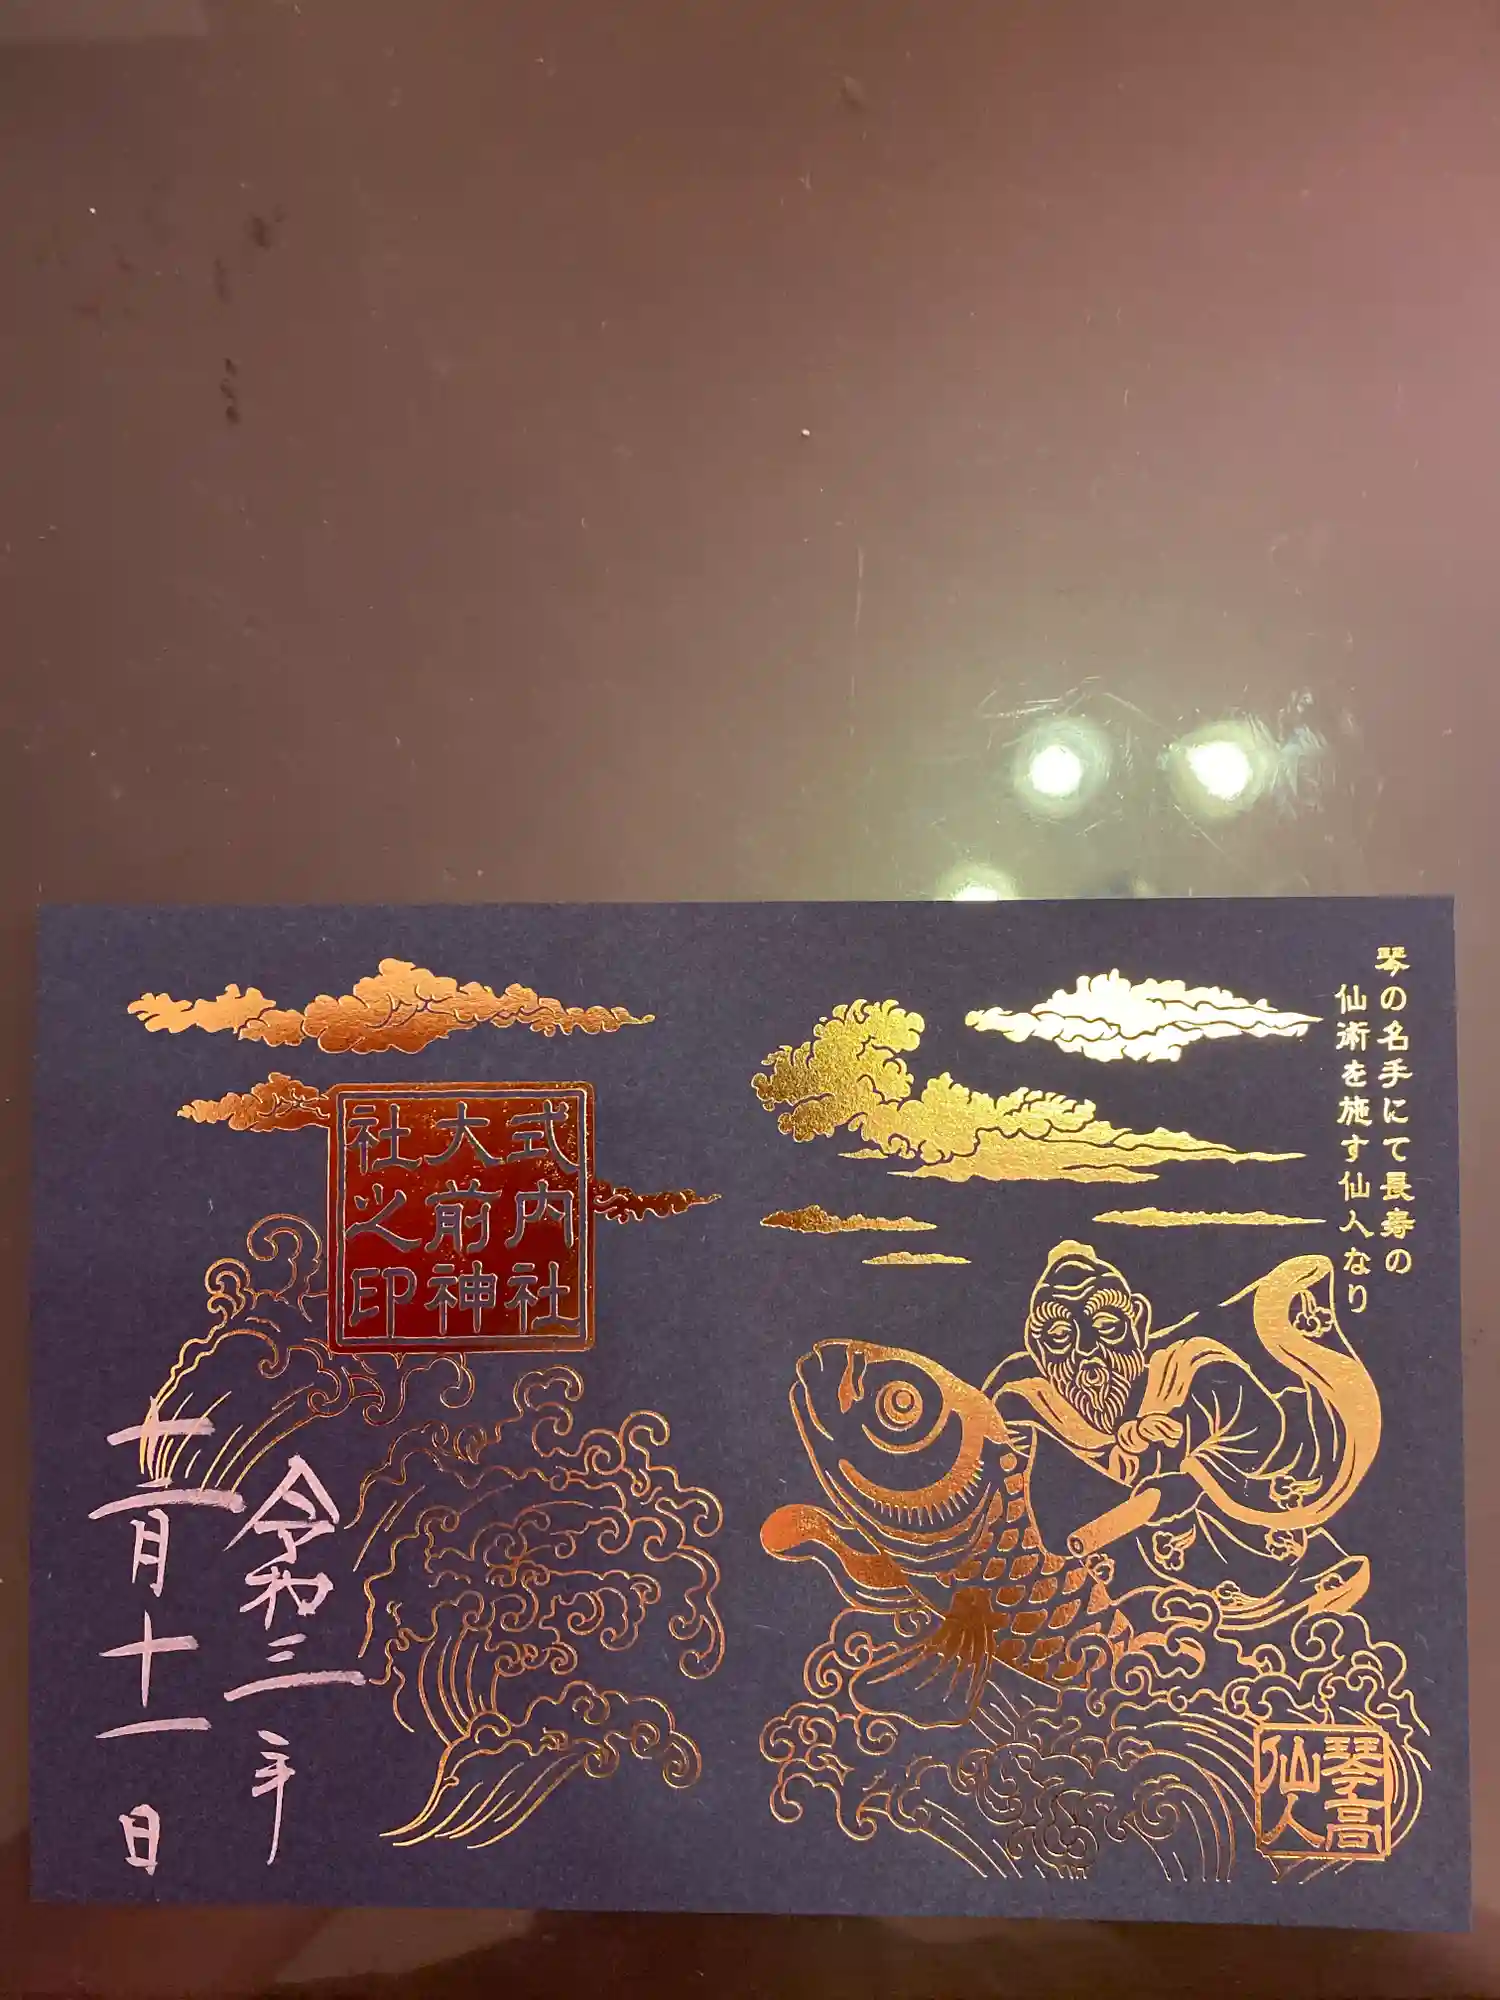 琴の名手にて長寿の
仙術を施す仙人なり
琴高
仙人
式内社
大前神
社之印
令和三年
十二月十一日